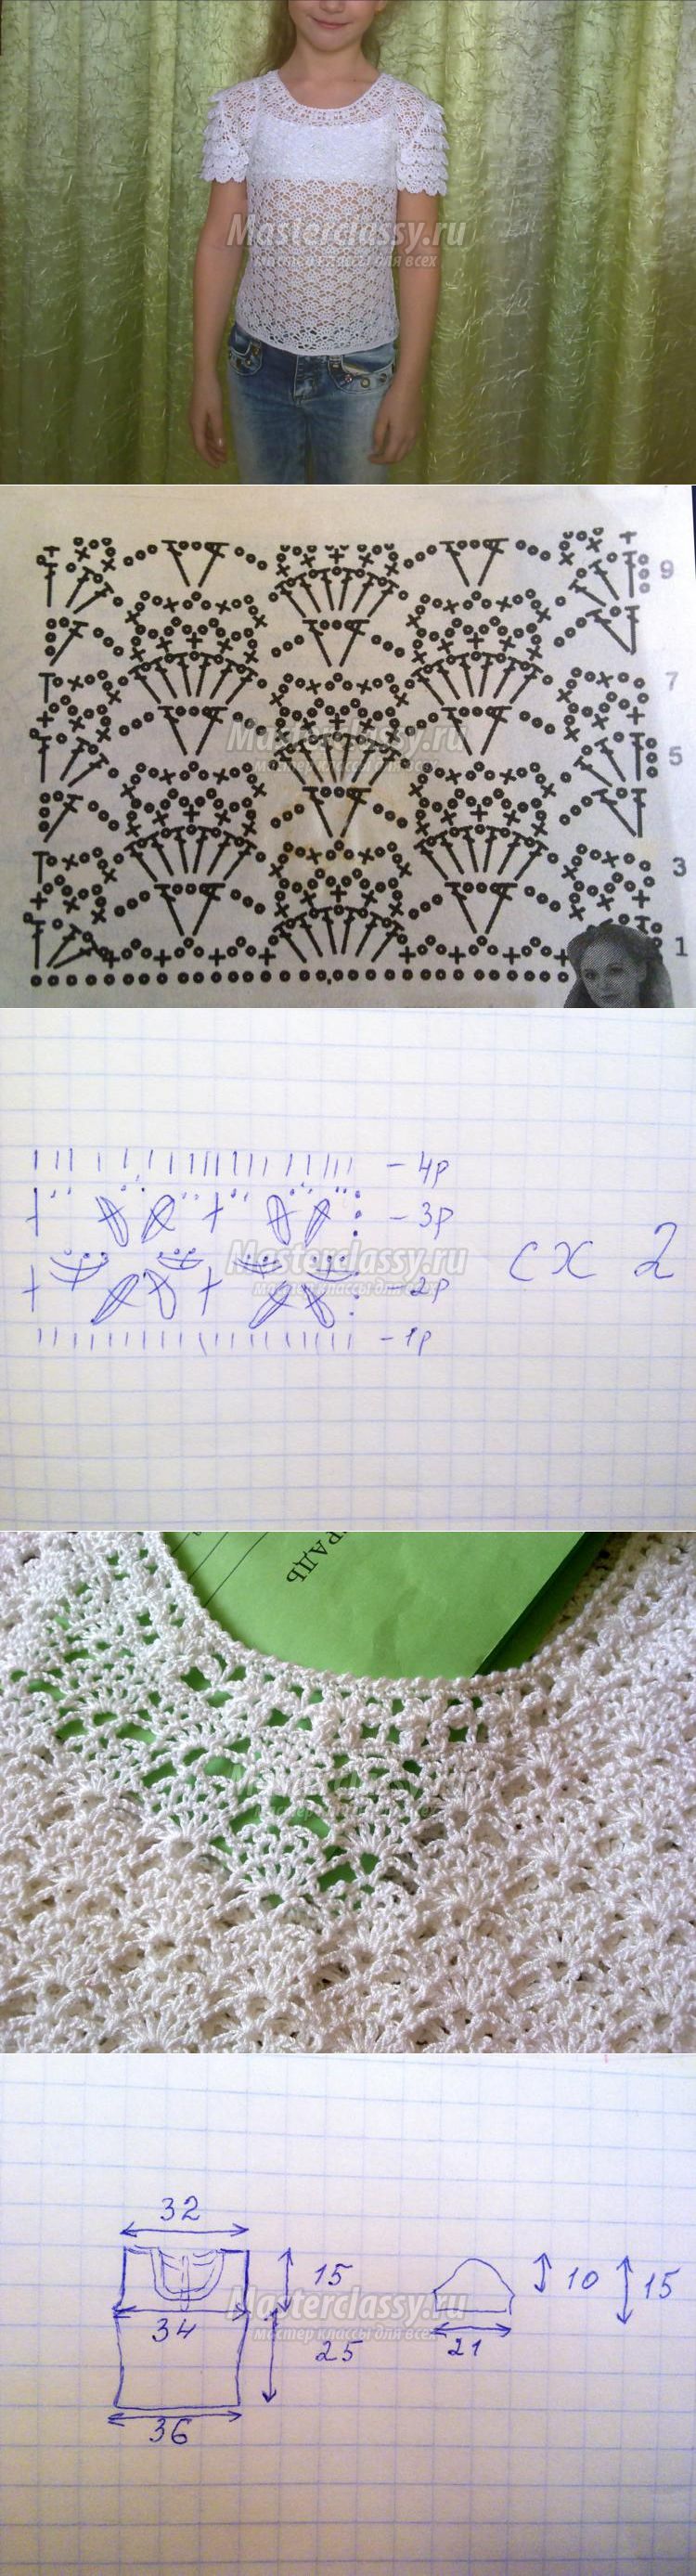 Masterclassy.ru
мастер классы для всех
9
7
Masterclassy.ru
мастер классы для всех
5
3
1
- 4р
- 3р
Masterclassy.ru
мастер классы для всех
сх 2
- 2р
- 1р
РАДЬ
Masterclassy.ru
мастер классы для всех
32
15
10
15
Masterclassy.ru
мастер классы для всех
34
25
21
36